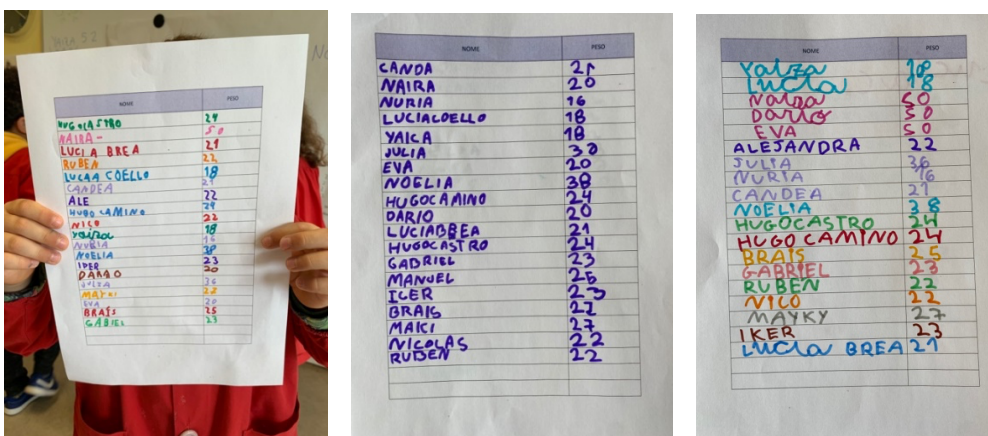 NOME PESO
HUGOCASTRO 24
NAIRA- 50
LUCIA BREA 21
RUBEN 22
LUCAA COELLO 18
CANDEA 21
ALE 22
HUGO CAMINO 24
NICO 22
Yaiza 18
NURIA 16
NOELIA 38
IPER 23
DARIO 20
JULIA 36
MAYKI 22
EVA 20
BRAIS 25
GABIEL 23
NOME PESO
CANDA 21
NAIRA 20
NURIA 16
LUCIACOELLO 18
YAICA 18
JULIA 30
EVA 20
NOELIA 38
HUGOCAMINO 24
DARIO 20
LUCIABBEA 21
HUGOCASTRO 24
GABRIEL 23
MANUEL 25
ICER 23
BRAIS 22
MAKI 27
NICOLAS 22
RUBEN 22
NOME PESO
Yaiza 18
LUCIA 18
Naiza 50
Dario 50
EVA 50
ALEJANDRA 22
JULIA 36
NURIA 16
CANDEA 21
NOELIA 38
HUGOCASTRO 24
HUGO CAMINO 24
BRAIS 25
GABRIEL 23
RUBEN 22
NICO 22
MAYKY 27
IKER 23
LUCIa BREA 21